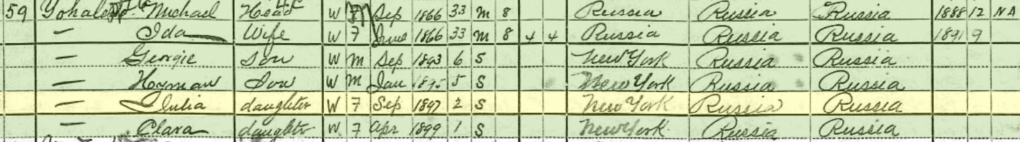 59 Michael Head W Sep 1866 33 M 8 Russia Russia Russia 1888 12 NA
— Ida Wife W F June 1866 33 M 8 4 4 Russia Russia Russia 1891 9
— Georgie Son W M Sep 1893 6 S New York Russia Russia
— Hoyman Son W M Jan 1895 5 S New York Russia Russia
— Julia daughter W F Sep 1897 2 S New York Russia Russia
— Clara daughter W F Apr 1899 1 S New York Russia Russia